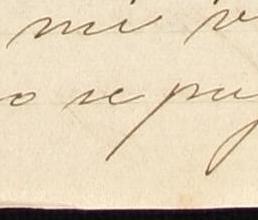 mi
o se pu